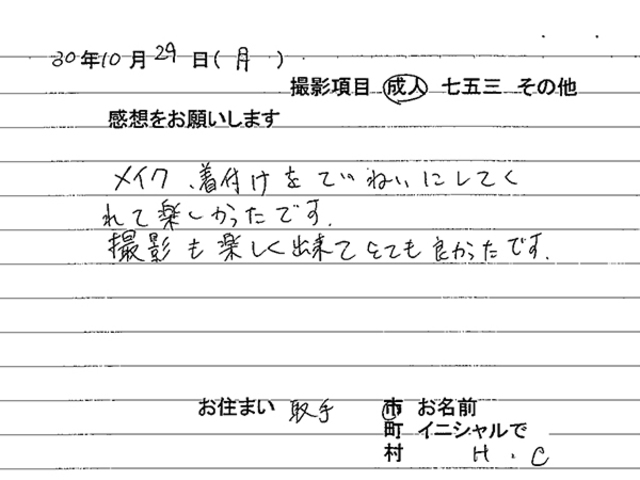 30年10月29日(月)
撮影項目 成人 七五三 その他
感想をお願いします
メイク、着付けをていねいにしてく
れて楽しかったです.
撮影も楽しく出来てとても良かったです.
お住まい 取手 市 お名前
町 イニシャルで
村 H.C